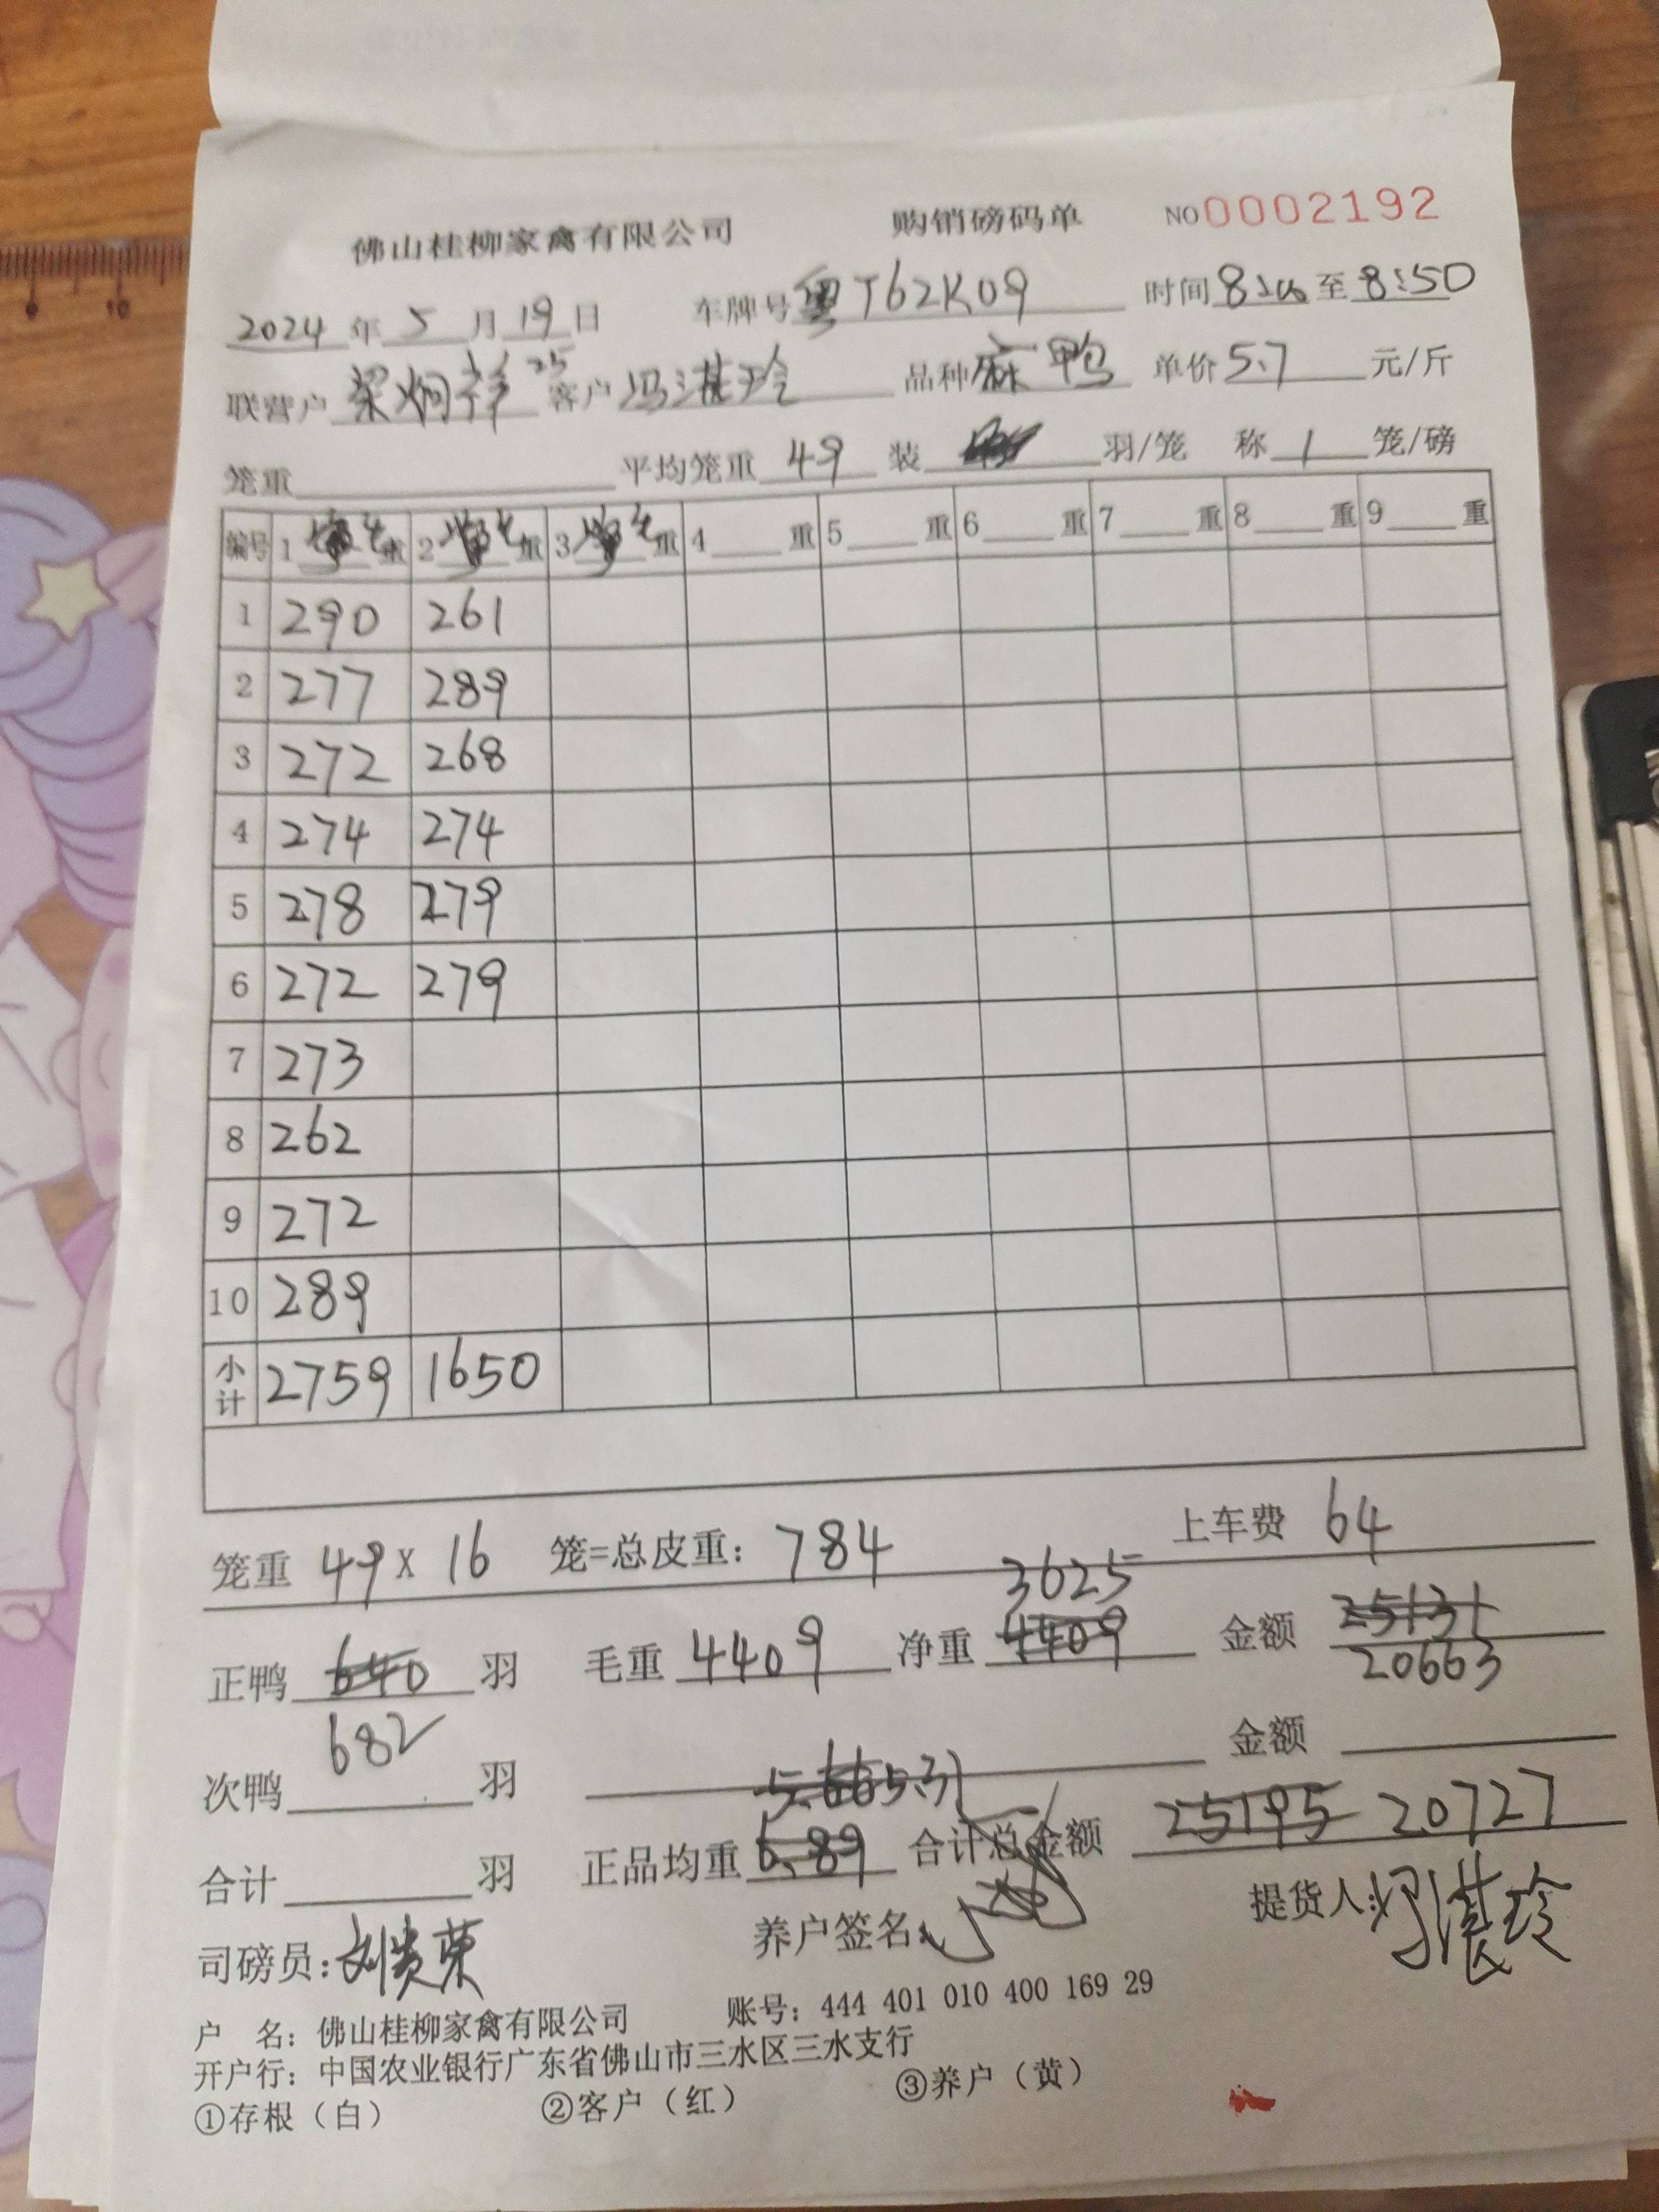 佛山桂柳家禽有限公司 购销磅码单 NO0002192
2024年5月19日 车牌号粤T62K09 时间8:20至8:50
联营户梁炯祥25 客户冯湛玲 品种麻鸭 单价5.7元/斤
笼重 平均笼重49装 羽/笼 称1笼/磅
编号 1 重 2 重 3 重 4 重 5 重 6 重 7 重 8 重 9 重
1 290 261
2 277 289
3 272 268
4 274 274
5 278 279
6 272 279
7 273
8 262
9 272
10 289
小计 2759 1650
笼重49x16笼=总皮重:784 上车费64
3625
正鸭640羽 毛重4409 净重4409 金额25131
682 20663
次鸭 羽 金额
5.31
合计 羽 正品均重6.89 合计总金额25195 20727
司磅员:刘贵荣 养户签名: 提货人:冯湛玲
户 名:佛山桂柳家禽有限公司 账号:444 401 010 400 169 29
开户行:中国农业银行广东省佛山市三水区三水支行
①存根(白) ②客户(红) ③养户(黄)